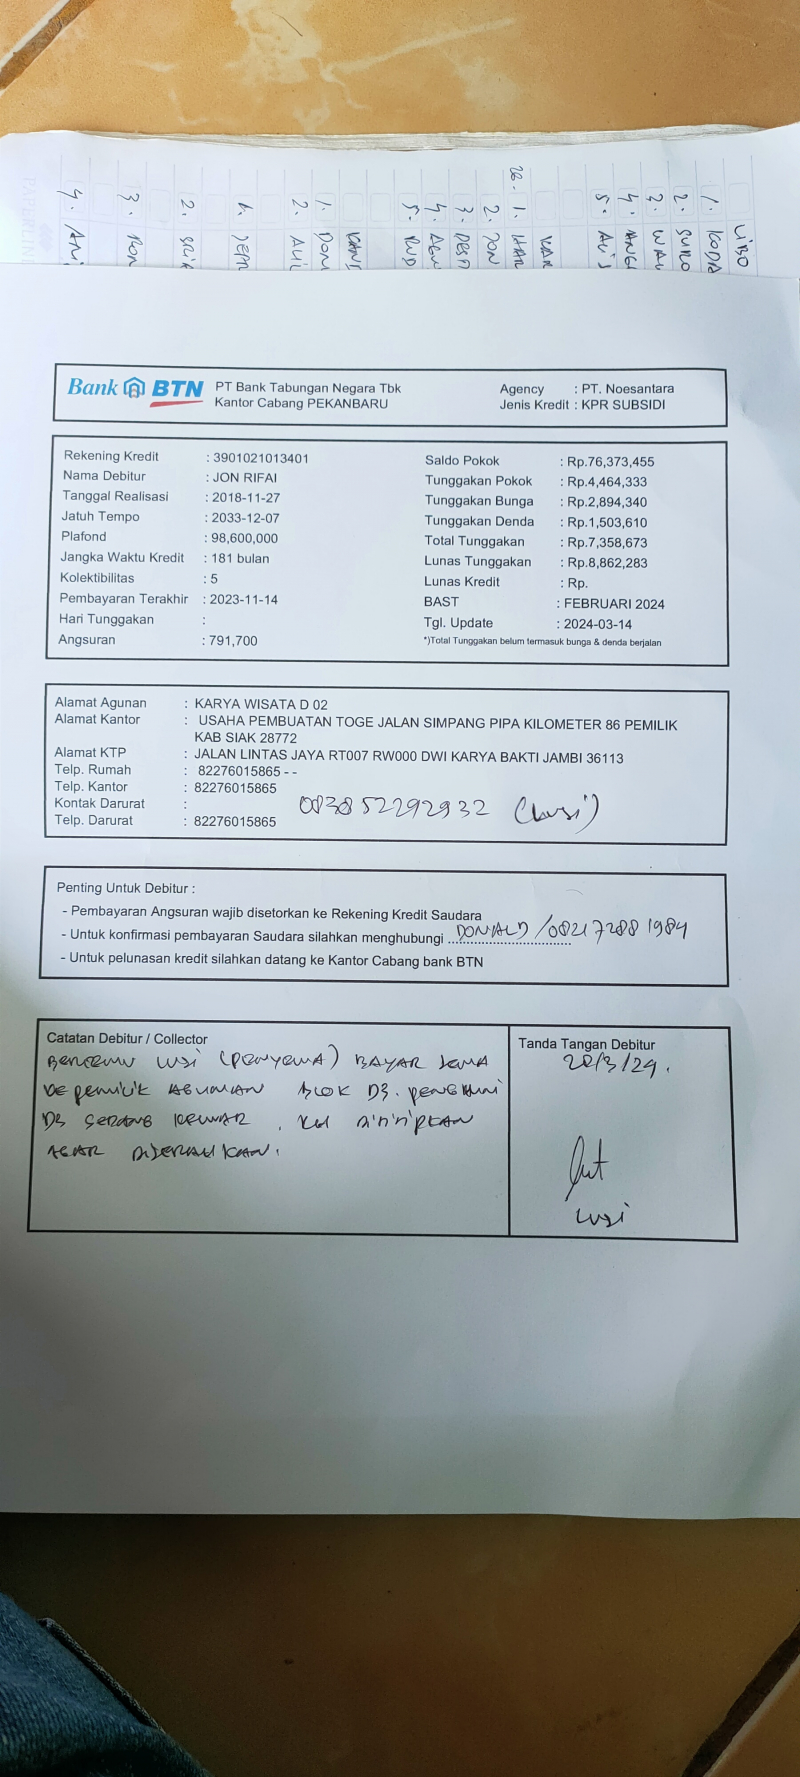 LIBO
1. KODA
2. SURO
3. WAL
4. ANGG
5. ALI
KAR
26. 1. HAR
2. JON
3. DESM
4. AGU
5. RUD
KAND
1. DON
2. ALI
1. JEPR
2. SRI
3. RON
4. ARI
Bank BTN
PT Bank Tabungan Negara Tbk
Kantor Cabang PEKANBARU
Agency : PT. Noesantara
Jenis Kredit : KPR SUBSIDI
Rekening Kredit : 3901021013401
Nama Debitur : JON RIFAI
Tanggal Realisasi : 2018-11-27
Jatuh Tempo : 2033-12-07
Plafond : 98,600,000
Jangka Waktu Kredit : 181 bulan
Kolektibilitas : 5
Pembayaran Terakhir : 2023-11-14
Hari Tunggakan :
Angsuran : 791,700
Saldo Pokok : Rp.76,373,455
Tunggakan Pokok : Rp.4,464,333
Tunggakan Bunga : Rp.2,894,340
Tunggakan Denda : Rp.1,503,610
Total Tunggakan : Rp.7,358,673
Lunas Tunggakan : Rp.8,862,283
Lunas Kredit : Rp.
BAST : FEBRUARI 2024
Tgl. Update : 2024-03-14
*)Total Tunggakan belum termasuk bunga & denda berjalan
Alamat Agunan : KARYA WISATA D 02
Alamat Kantor : USAHA PEMBUATAN TOGE JALAN SIMPANG PIPA KILOMETER 86 PEMILIK
KAB SIAK 28772
Alamat KTP : JALAN LINTAS JAYA RT007 RW000 DWI KARYA BAKTI JAMBI 36113
Telp. Rumah : 82276015865 - -
Telp. Kantor : 82276015865
Kontak Darurat : 083852292932 (Lusi)
Telp. Darurat : 82276015865
Penting Untuk Debitur :
- Pembayaran Angsuran wajib disetorkan ke Rekening Kredit Saudara
- Untuk konfirmasi pembayaran Saudara silahkan menghubungi DONALD / 082172881984
- Untuk pelunasan kredit silahkan datang ke Kantor Cabang bank BTN
Catatan Debitur / Collector
BERTEMU LUSI (PENYEWA) BAYAR SEWA
KE PEMILIK AGUNAN BLOK D3. PENGHUNI
D3 SEDANG KELUAR, KU DITITIPKAN
AGAR DISERAHKAN.
Tanda Tangan Debitur
28/3/24.
Lusi